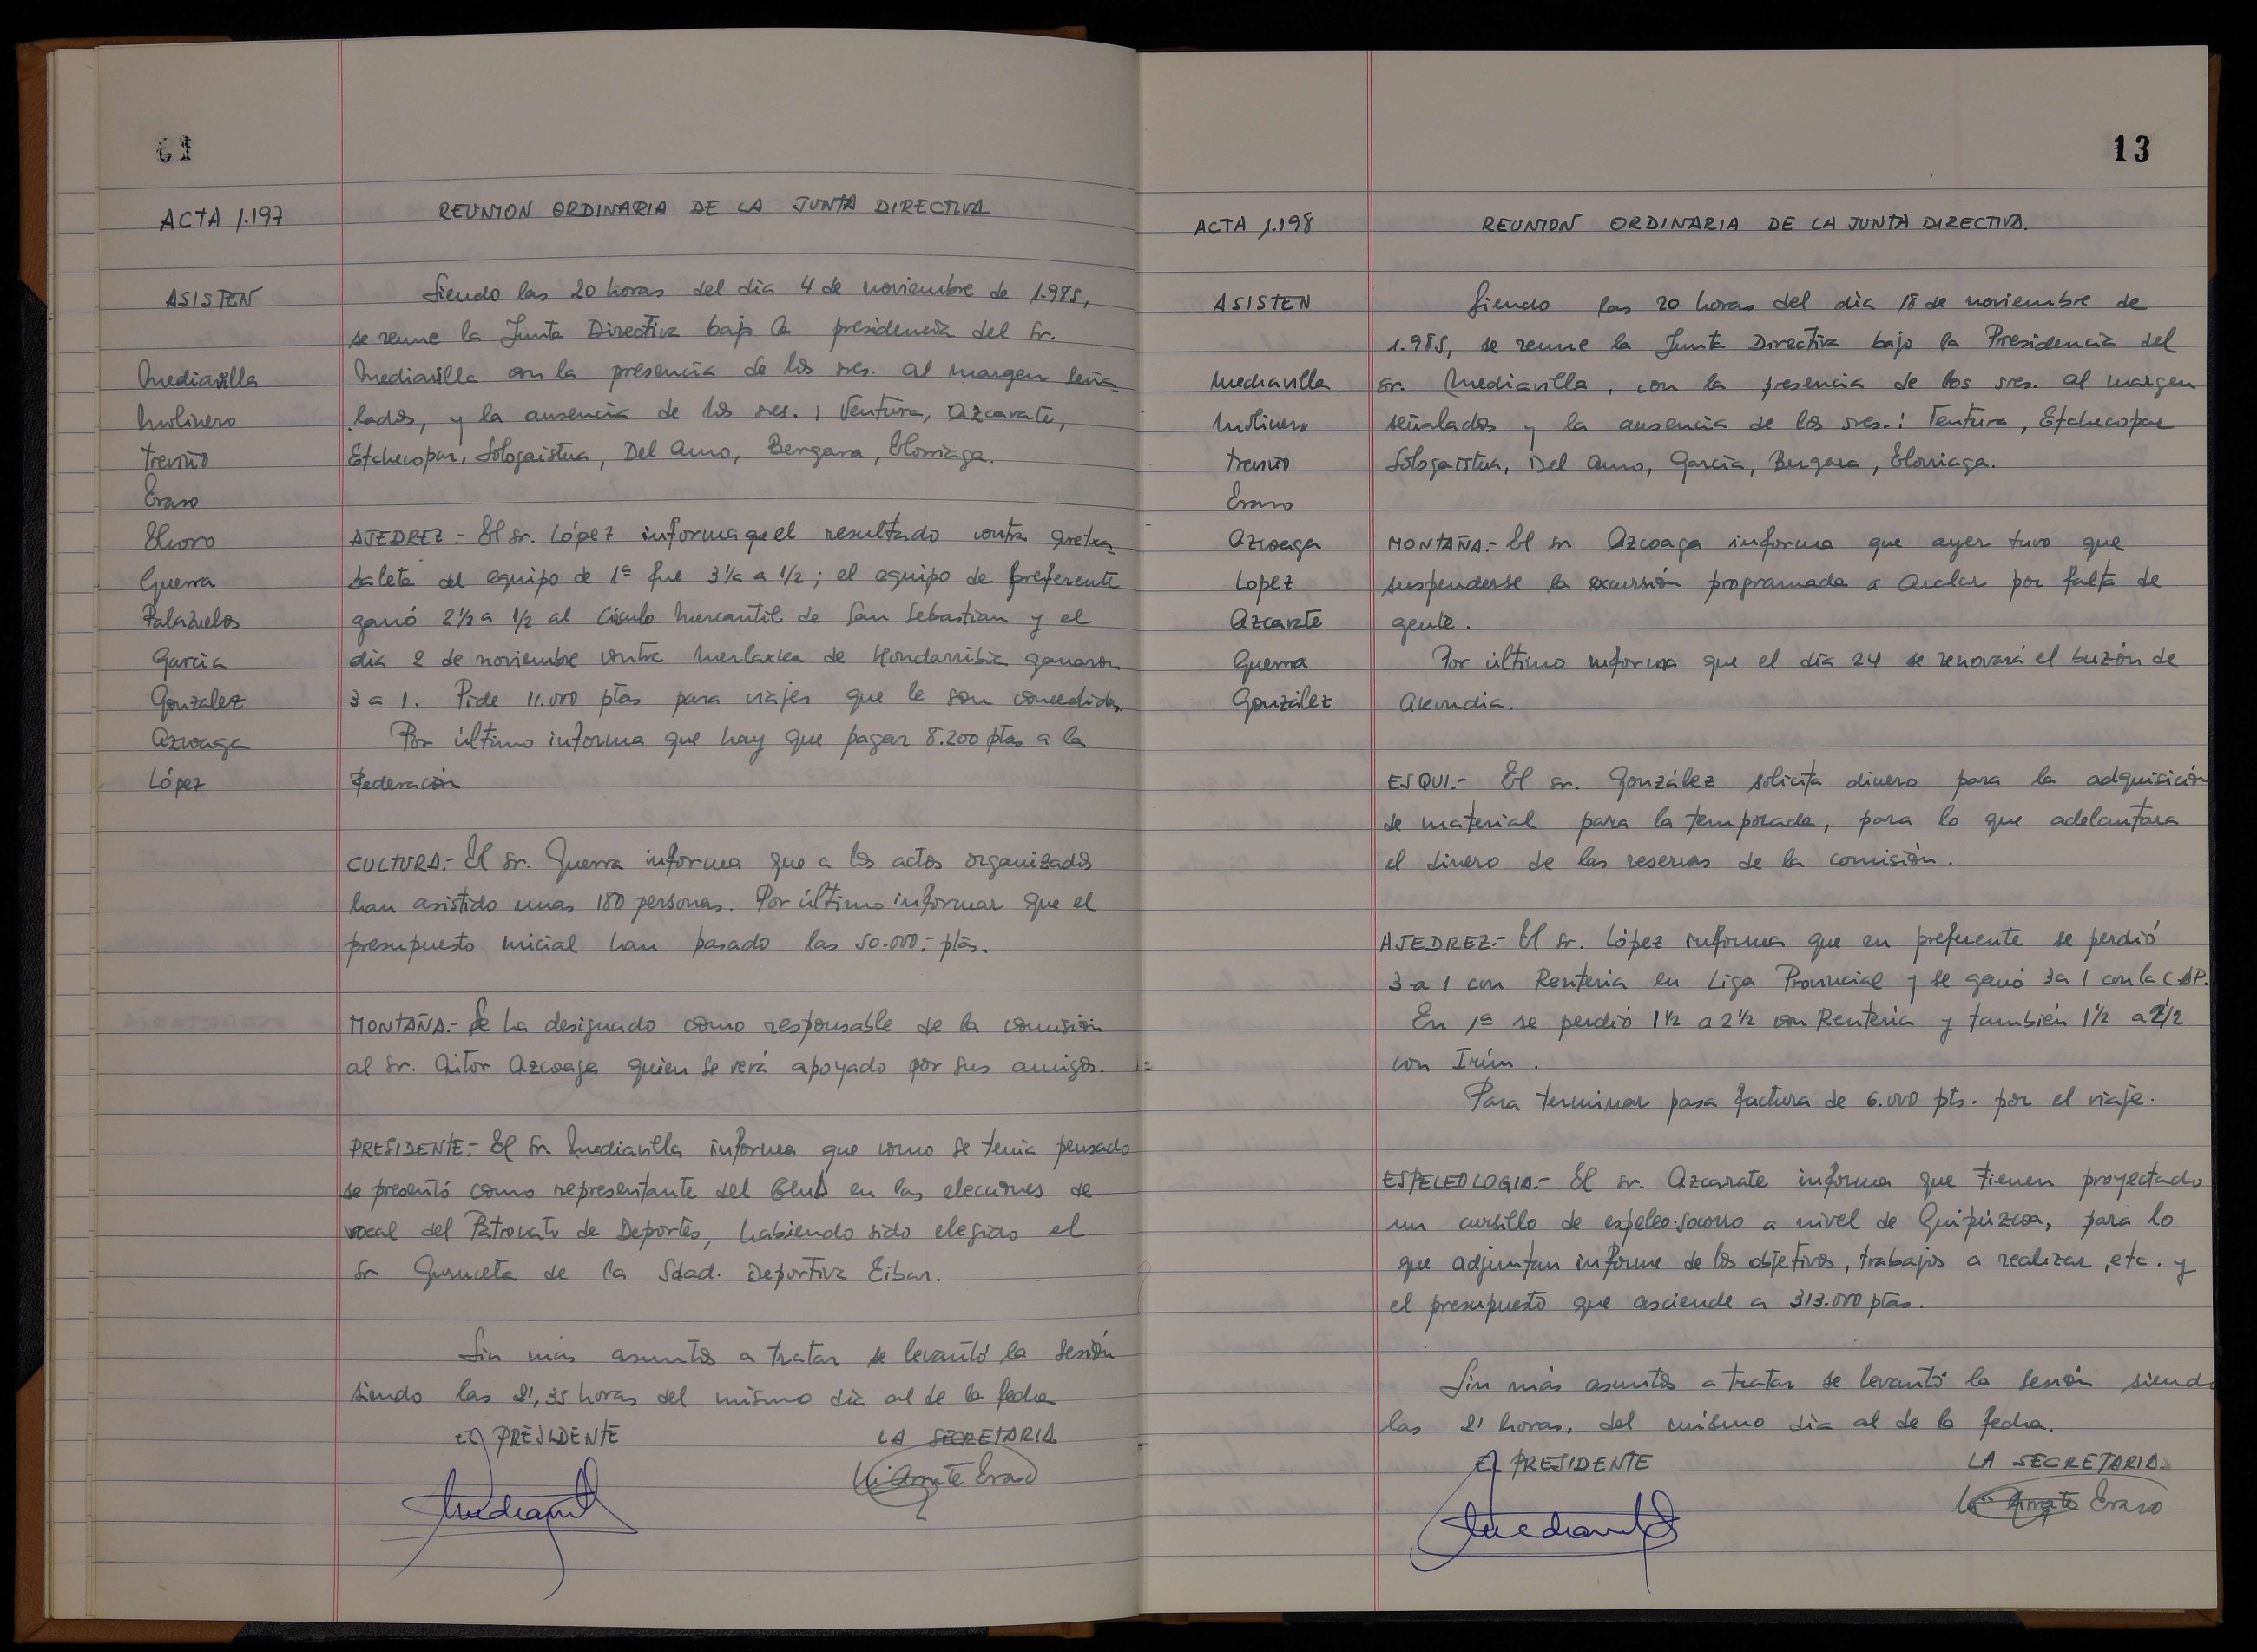 ACTA 1.197
REUNION ORDINARIA DE LA JUNTA DIRECTIVA
ASISTEN
Mediavilla
Molinero
Treviño
Eraso
Elcoro
Guerra
Palazuelos
García
Gonzalez
Azcoaga
López
Siendo las 20 horas del día 4 de noviembre de 1.985,
se reune la Junta Directiva bajo la presidencia del Sr.
Mediavilla con la presencia de los sres. al margen seña
lados, y la ausencia de los sres. ; Ventura, Azcarate,
Etchecopar, Sologaistua, Del Amo, Bergara, Elorriaga.
AJEDREZ.- El Sr. López informa que el resultado contra Gretxa
baleta del equipo de 1ª fue 3½ a ½; el equipo de preferente
ganó 2½ a ½ al Círculo Mercantil de San Sebastian y el
día 2 de noviembre contra Merlaxka de Hondarribia ganaron
3 a 1. Pide 11.000 ptas para viajes que le son concedidas.
Por último informa que hay que pagar 8.200 ptas a la
Federación
CULTURA.- El Sr. Guerra informa que a los actos organizados
han asistido unas 180 personas. Por último informar que el
presupuesto inicial han pasado las 50.000.- ptas.
MONTAÑA.- Se ha designado como responsable de la comisión
al Sr. Aitor Azcoaga quien se verá apoyado por sus amigos.
PRESIDENTE.- El Sr. Mediavilla informa que como se tenia pensado
se presentó como representante del Club en las elecciones de
vocal del Patronato de Deportes, habiendo sido elegido el
Sr Guruceta de la Sdad. Deportiva Eibar.
Sin más asuntos a tratar se levantó la sesión
siendo las 21,35 horas del mismo día al de la fecha
EL PRESIDENTE LA SECRETARIA
Mª Arrate Eraso
13
ACTA 1.198
REUNION ORDINARIA DE LA JUNTA DIRECTIVA.
ASISTEN
Mediavilla
Molinero
Treviño
Eraso
Azcoaga
Lopez
Azcarate
Guerra
González
Siendo las 20 horas del día 18 de noviembre de
1.985, se reune la Junta Directiva bajo la Presidencia del
Sr. Mediavilla, con la presencia de los sres. al margen
señalados y la ausencia de los sres.: Ventura, Etchecopar
Sologaistua, Del Amo, García, Bergara, Elorriaga.
MONTAÑA.- El sr Azcoaga informa que ayer tuvo que
suspenderse la excursión programada a Aralar por falta de
gente.
Por último informa que el día 24 se renovará el buzón de
Akondia.
ESQUI.- El sr. González solicita dinero para la adquisición
de material para la temporada, para lo que adelantara
el dinero de las reservas de la comisión.
AJEDREZ.- El Sr. López informa que en preferente se perdió
3 a 1 con Rentería en Liga Provincial y se ganó 3 a 1 con la C.D.P.
En 1ª se perdió 1½ a 2½ con Rentería y también 1½ a 2½
con Irún.
Para terminar pasa factura de 6.000 pts. por el viaje.
ESPELEOLOGIA.- El sr. Azcarate informa que tienen proyectado
un cursillo de espeleo-socorro a nivel de Guipúzcoa, para lo
que adjuntan informe de los objetivos, trabajos a realizar, etc. y
el presupuesto que asciende a 313.000 ptas.
Sin más asuntos a tratar se levantó la sesión siendo
las 21 horas, del mismo día al de la fecha.
EL PRESIDENTE LA SECRETARIA.
Mª Arrate Eraso